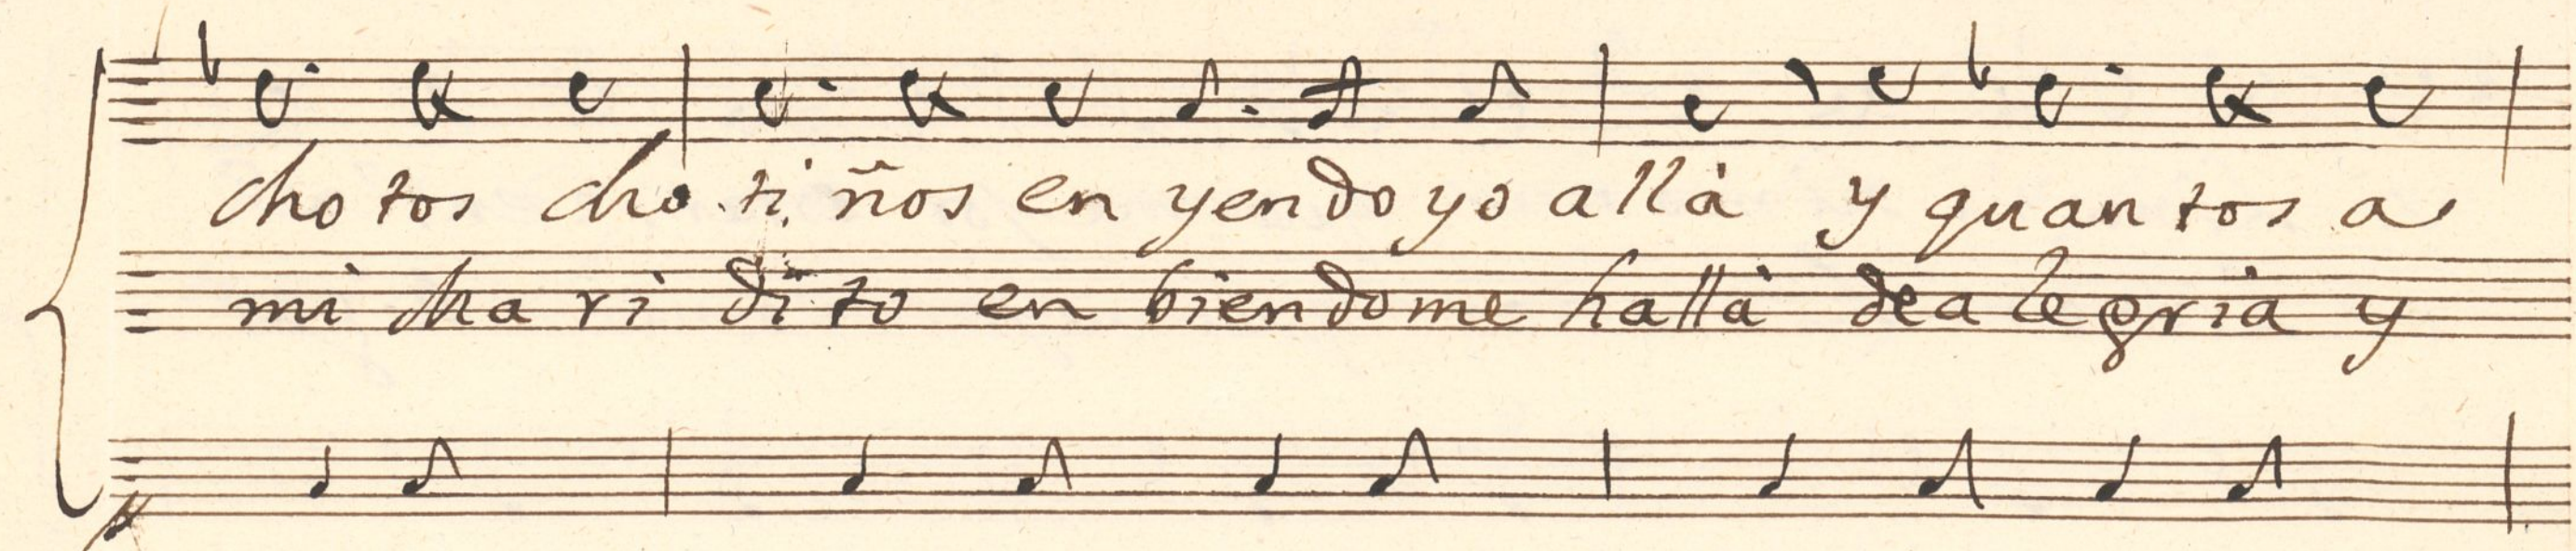 cho tos cho ti ños en yen do yo allà y quan tos a
mi Ma ri di to en bien do me hallà de a le gria y